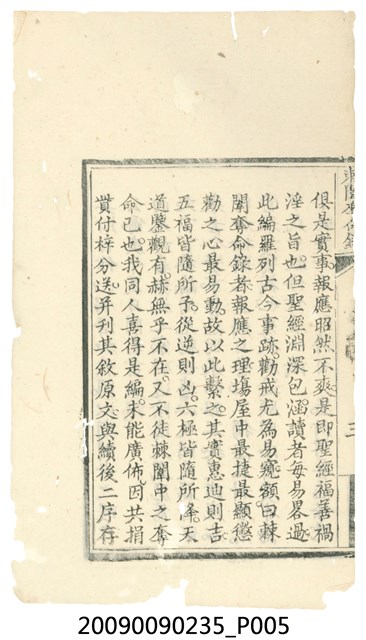 俱是實事報應昭然不爽是即聖經福善禍
淫之旨也但聖經淵深包涵讀者每易畧過
此編羅列古今事跡勸戒尤為易窺額曰棘
闈奪命錄葢報應之理塲屋中最捷最顯懲
勸之心最易動故以此繫之其實惠迪則吉
五福皆隨所予從逆則凶六極皆隨所降天
道鑒觀有赫無乎不在又不徒棘闈中之奪
命已也我同人喜得是編未能廣佈因共捐
貲付梓分送並刋其敘原文與續後二序存
三
20090090235_P005